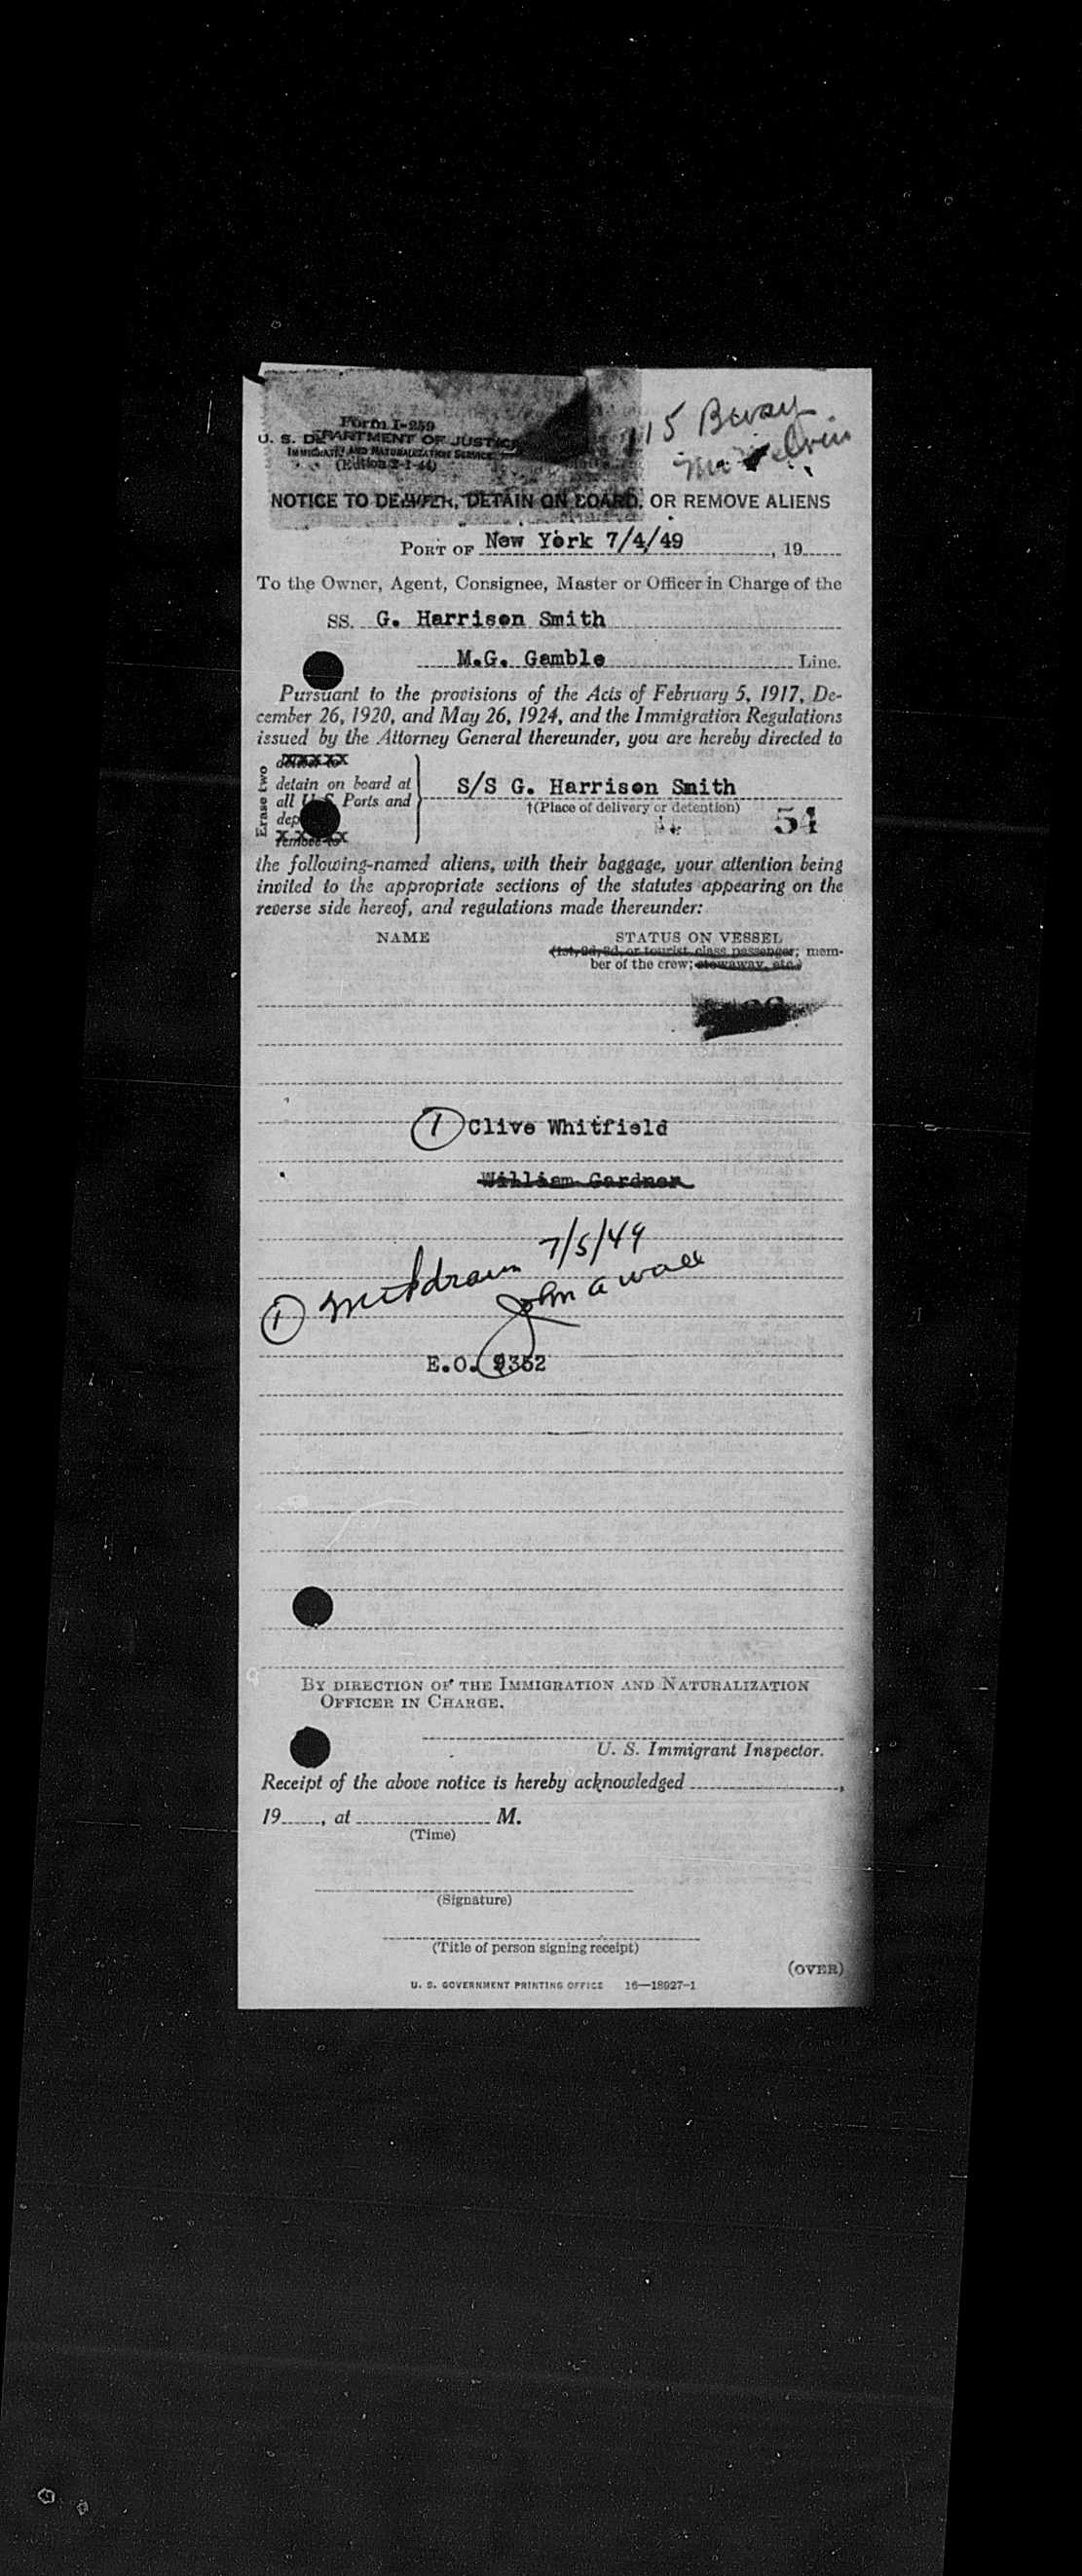 115 Bway
Form I-259
U. S. DEPARTMENT OF JUSTICE
IMMIGRATION AND NATURALIZATION SERVICE
(Edition 2-1-44)
NOTICE TO DELIVER, DETAIN ON BOARD, OR REMOVE ALIENS
PORT OF New York 7/4/49, 19
To the Owner, Agent, Consignee, Master or Officer in Charge of the
SS. G. Harrison Smith
M.G. Gamble Line.
Pursuant to the provisions of the Acts of February 5, 1917, De-
cember 26, 1920, and May 26, 1924, and the Immigration Regulations
issued by the Attorney General thereunder, you are hereby directed to
Erase two
deliver to
detain on board at
all U.S. Ports and
dep
remove to
S/S G. Harrison Smith
†(Place of delivery or detention)
54
the following-named aliens, with their baggage, your attention being
invited to the appropriate sections of the statutes appearing on the
reverse side hereof, and regulations made thereunder:
NAME STATUS ON VESSEL
(1st, 2d, 3d, or tourist class passenger; mem-
ber of the crew; stowaway, etc.)
1 Clive Whitfield
William Gardner
7/5/49
1 Withdrawn
John A Wall
E.O. 9352
BY DIRECTION OF THE IMMIGRATION AND NATURALIZATION
OFFICER IN CHARGE.
U. S. Immigrant Inspector.
Receipt of the above notice is hereby acknowledged ,
19 , at M.
(Time)
(Signature)
(Title of person signing receipt)
(OVER)
U. S. GOVERNMENT PRINTING OFFICE 16—18027-1